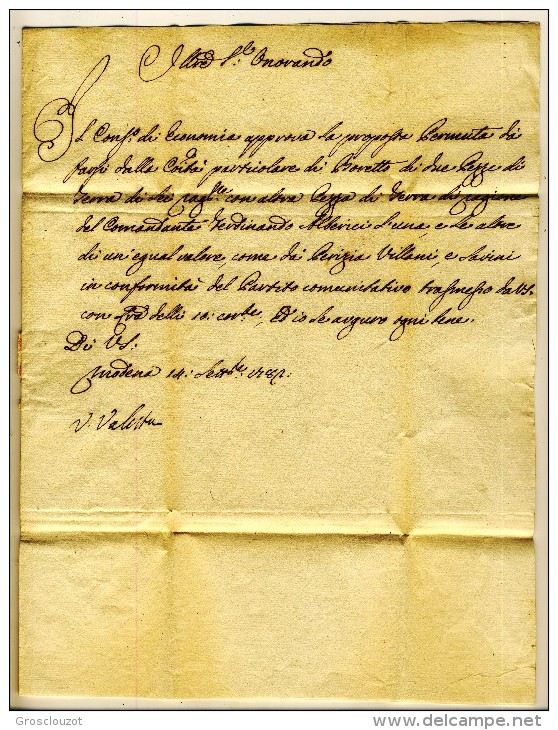 Illre Sr. Onorando
Il Consº. di Economia approva la proposta Permuta da
farsi dalla Coità particolare di Boretto di due Pezze di
Terra di Lei con altra Pezza di Terra di ragione
del Comandante Ferdinando Alberici l'una, e le altre
di un'egual valore come da Perizia Villani, e Savini
in conformità del Partito comunitativo trasmesso da VS.
con delli 10. corrte, Ed io le auguro ogni bene.
Di VS.
Modena 14. Settbre
V. Valotta
Grosclouzot
www.delcampe.net